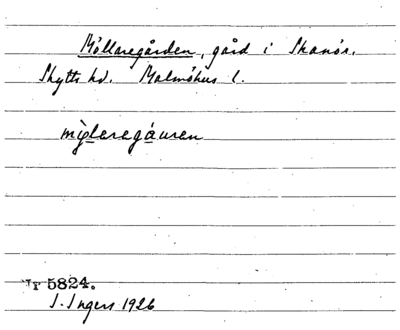 Möllaregården, gård i Skanör.
Skytts hd. Malmöhus l.
mǫ̀laregáuren
Nr 5824.
I. Ingers 1926